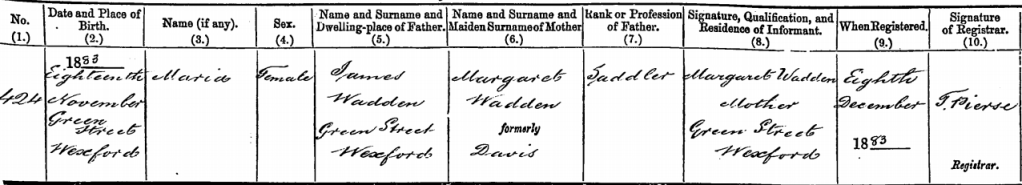 No.
(1.)
Date and Place of
Birth.
(2.)
Name (if any).
(3.)
Sex.
(4.)
Name and Surname and
Dwelling-place of Father.
(5.)
Name and Surname and
Maiden Surname of Mother
(6.)
Rank or Profession
of Father.
(7.)
Signature, Qualification, and
Residence of Informant.
(8.)
When Registered.
(9.)
Signature
of Registrar.
(10.)
424
1883
Eighteenth
November
Green
Street
Wexford
Maria
Female
James
Wadden
Green Street
Wexford
Margaret
Wadden
formerly
Davis
Saddler
Margaret Wadden
Mother
Green Street
Wexford
Eighth
December
1883
T. Pierse
Registrar.